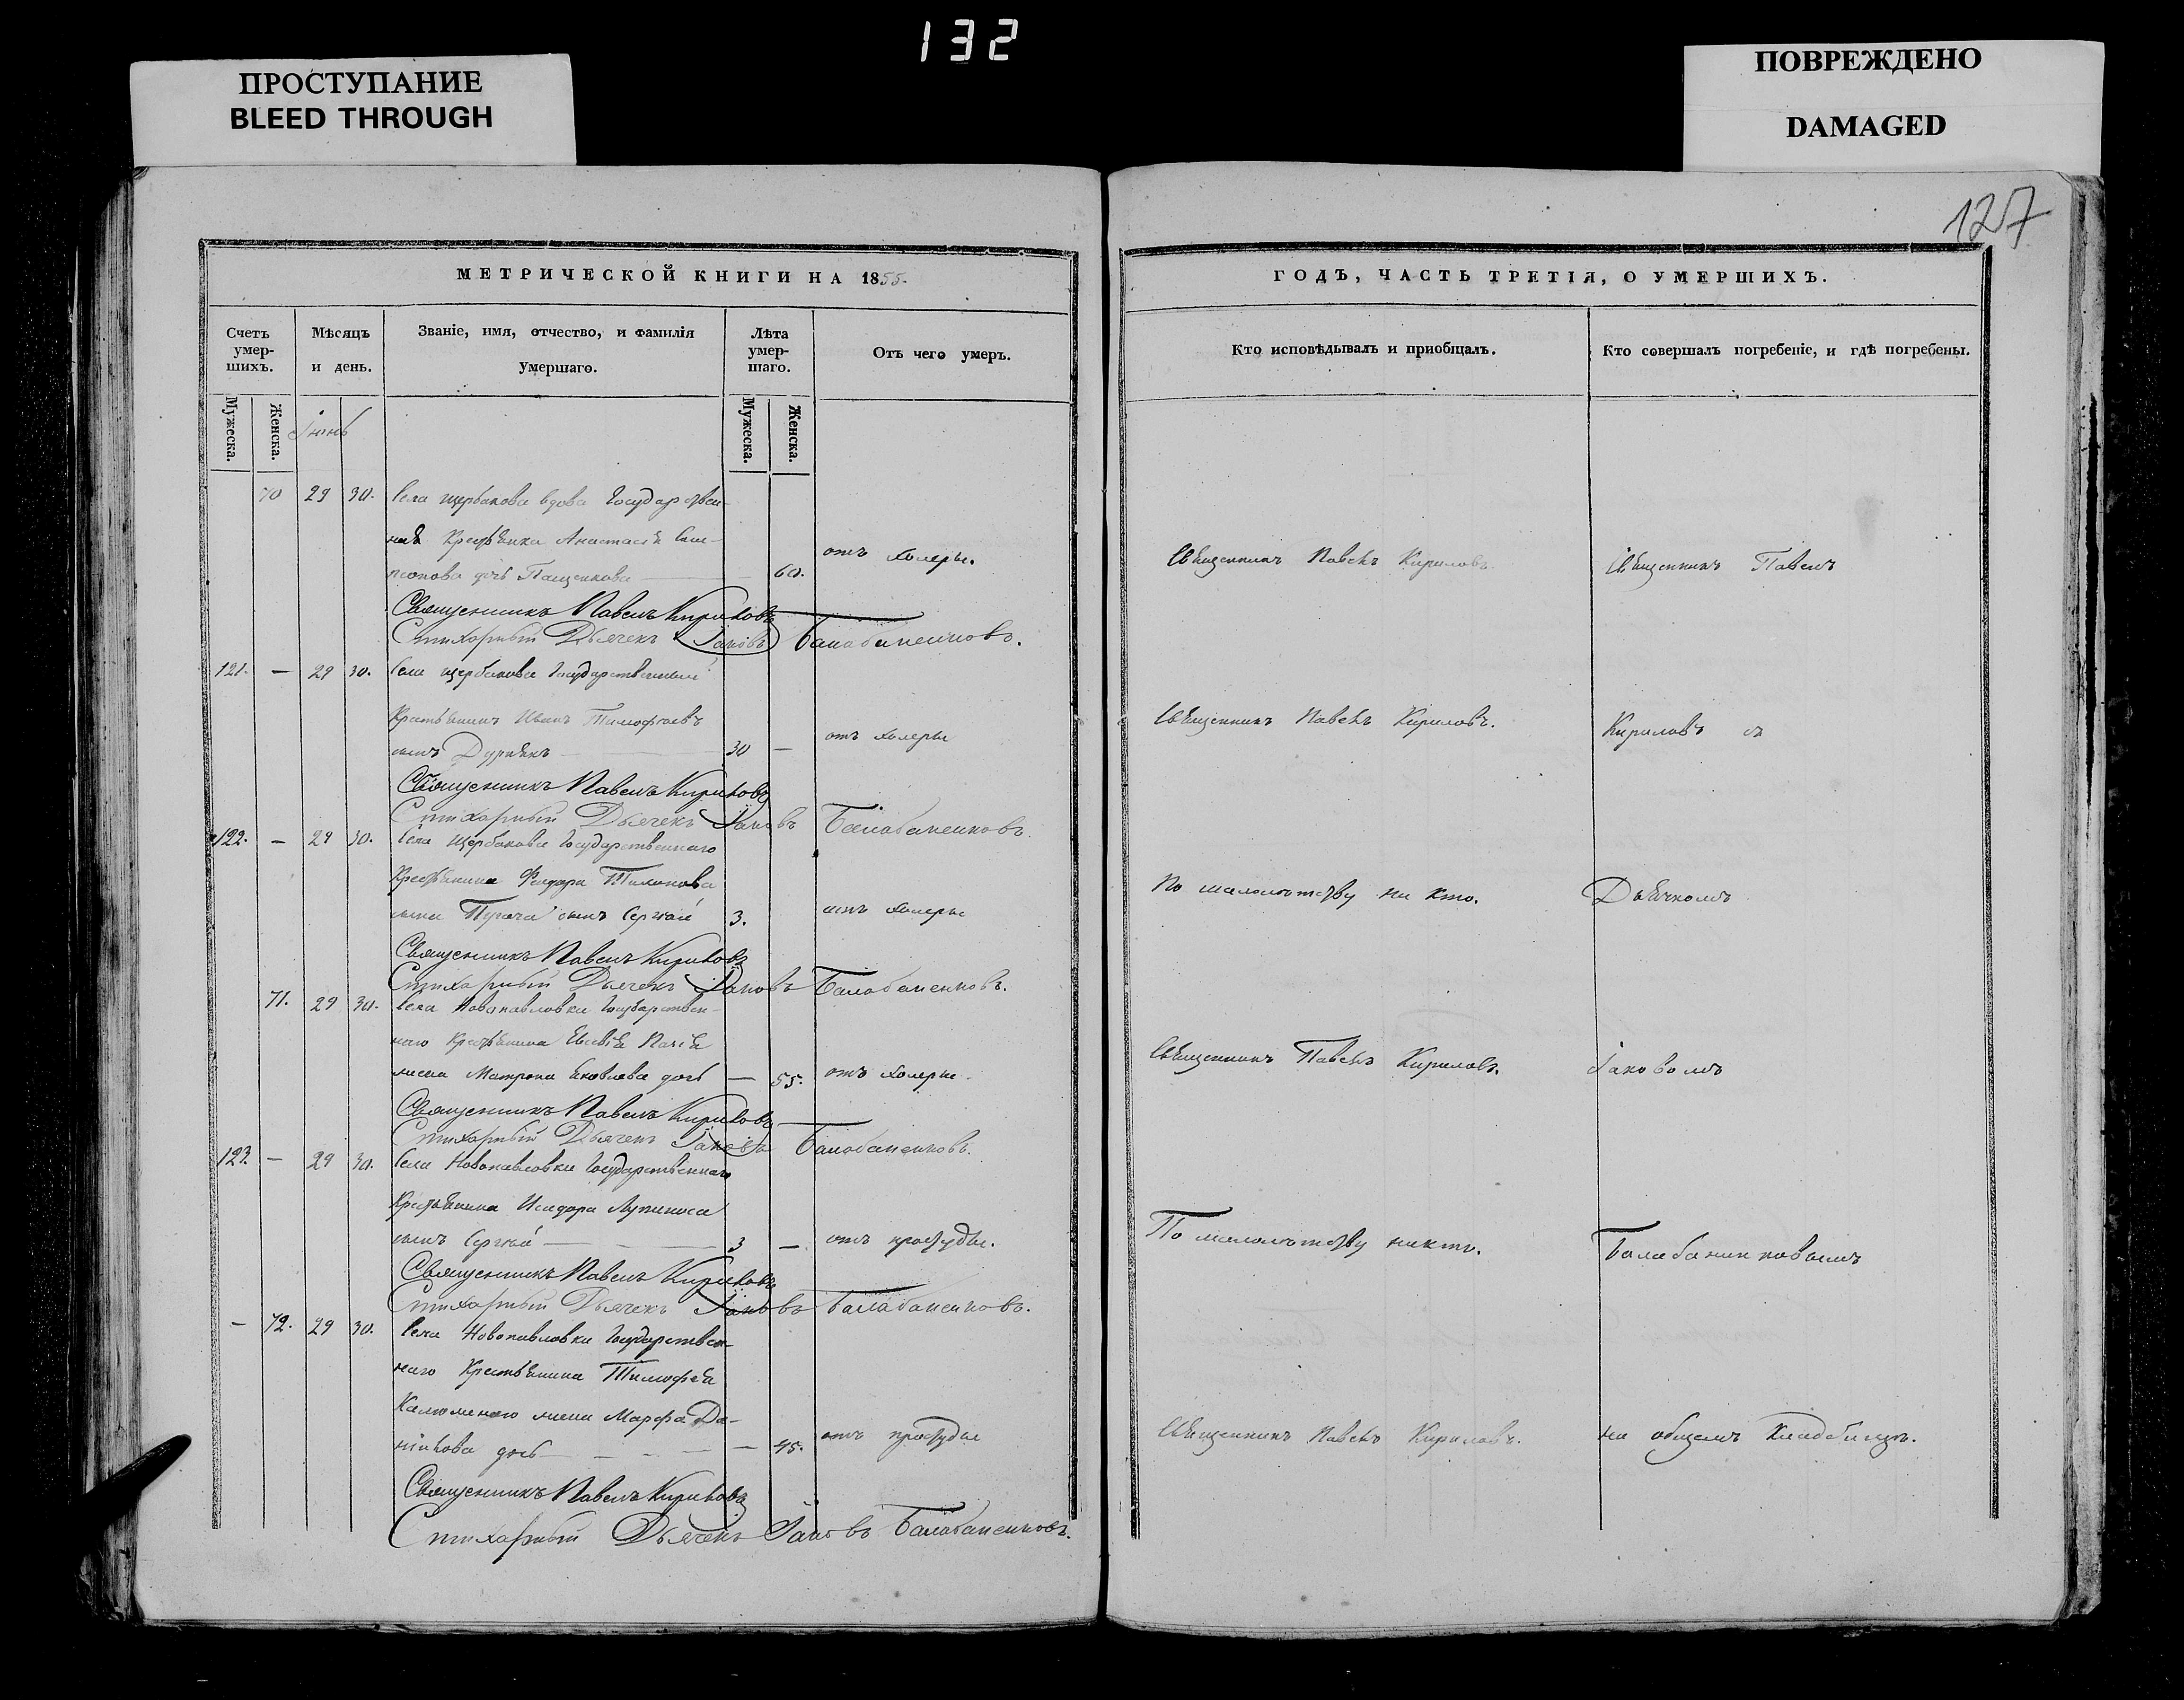 132
ПРОСТУПАНИЕ
BLEED THROUGH
ПОВРЕЖДЕНО
DAMAGED
127
МЕТРИЧЕСКОЙ КНИГИ НА 1855.
Счетъ умер-шихъ.
Мѣсяцъ и день.
Званіе, имя, отчество, и фамилія Умершаго.
Лѣта умер-шаго.
Отъ чего умеръ.
Мужеска.
Женска.
Іюнь
Мужеска.
Женска.
70 29 30. Села Щербакова вдова Государствен-
ная Крестьянка Анастасія
дочь Пащенкова 60. отъ холеры.
Священникъ Павелъ Кириловъ
Стихарный Дьячекъ Іаковъ Балабаненковъ.
121. — 29 30. Села Щербакова Государственный
Крестьянинъ Иванъ Тимофѣевъ
сынъ 30 — отъ холеры
Священникъ Павелъ Кириловъ
Стихарный Дьячекъ Іаковъ Балабаненковъ
122. — 29 30. Села Щербакова Государственнаго
Крестьянина Феодора Тихонова
сына Пугача сынъ Сергѣй 3. отъ холеры
Священникъ Павелъ Кириловъ
Стихарный Дьячекъ Іаковъ Балабаненковъ.
71. 29 30. Села Новопавловки Государствен-
наго Крестьянина
жена Матрона Яковлева дочь — 55. отъ холеры.
Священникъ Павелъ Кириловъ
Стихарный Дьячекъ Іаковъ Балабаненковъ.
123. — 29 30. Села Новопавловки Государственнаго
Крестьянина Исидора Лупиноса
сынъ Сергѣй 3 — отъ простуды.
Священникъ Павелъ Кириловъ
Стихарный Дьячекъ Іаковъ Балабаненковъ.
— 72. 29 30. Села Новопавловки Государствен-
наго Крестьянина Тимофея
жена Марфа Да-
нилова дочь — 45. отъ простуды
Священникъ Павелъ Кириловъ
Стихарный Дьячекъ Іаковъ Балабаненковъ.
ГОДЪ, ЧАСТЬ ТРЕТІЯ, О УМЕРШИХЪ.
Кто исповѣдывалъ и пріобщалъ.
Кто совершалъ погребеніе, и гдѣ погребены.
Священникъ Павелъ Кириловъ. Священникъ Павелъ
Священникъ Павелъ Кириловъ. Кириловъ съ
По малолѣтству ни кто. Дьячкомъ
Священникъ Павелъ Кириловъ. Іаковомъ
По малолѣтству никто. Балабаненковымъ
Священникъ Павелъ Кириловъ. на общемъ Кладбищѣ.